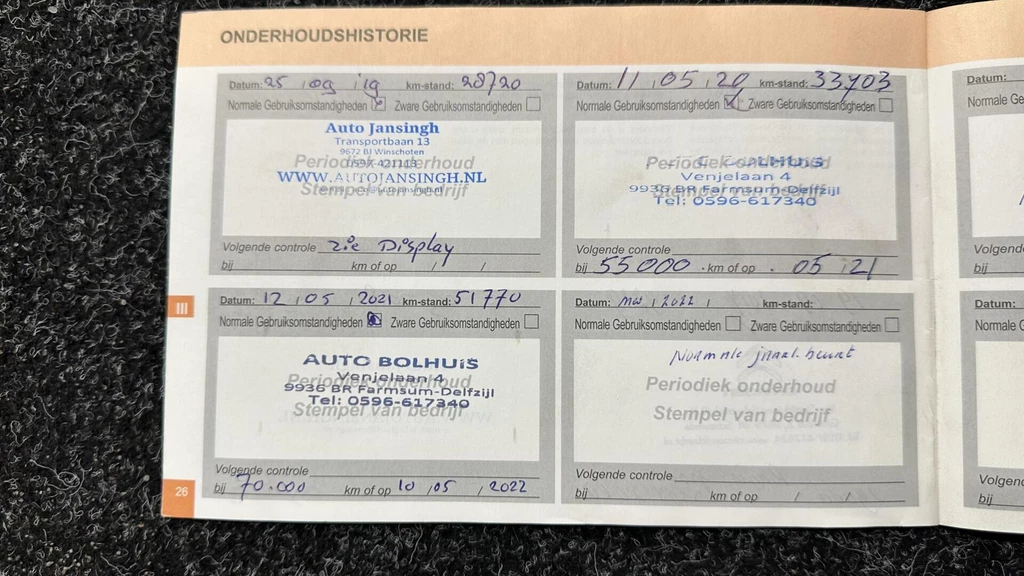 ONDERHOUDSHISTORIE
Datum: 25 / 09 / 19 km-stand: 28720
Normale Gebruiksomstandigheden Zware Gebruiksomstandigheden
Auto Jansingh
Transportbaan 13
9672 BJ Winschoten
0597-421113
Periodiek onderhoud
WWW.AUTOJANSINGH.NL
Stempel van bedrijf
Volgende controle zie Display
bij km of op / /
Datum: 11 / 05 / 20 km-stand: 33703
Normale Gebruiksomstandigheden Zware Gebruiksomstandigheden
Periodiek onderhoud
Venjelaan 4
Stempel van bedrijf
9936 BR Farmsum-Delfzijl
Tel: 0596-617340
Volgende controle
bij 55000 km of op 05 / 21
III
Datum: 12 / 05 / 2021 km-stand: 51770
Normale Gebruiksomstandigheden Zware Gebruiksomstandigheden
AUTO BOLHUIS
Venjelaan 4
Periodiek onderhoud
9936 BR Farmsum-Delfzijl
Tel: 0596-617340
Stempel van bedrijf
Volgende controle
bij 70.000 km of op 10 / 05 / 2022
Datum: / 2022 / km-stand:
Normale Gebruiksomstandigheden Zware Gebruiksomstandigheden
Normale jaarl. beurt
Periodiek onderhoud
Stempel van bedrijf
Volgende controle
bij km of op / /
26
Datum:
Normale
Volgend
bij
Datum:
Normale
bij